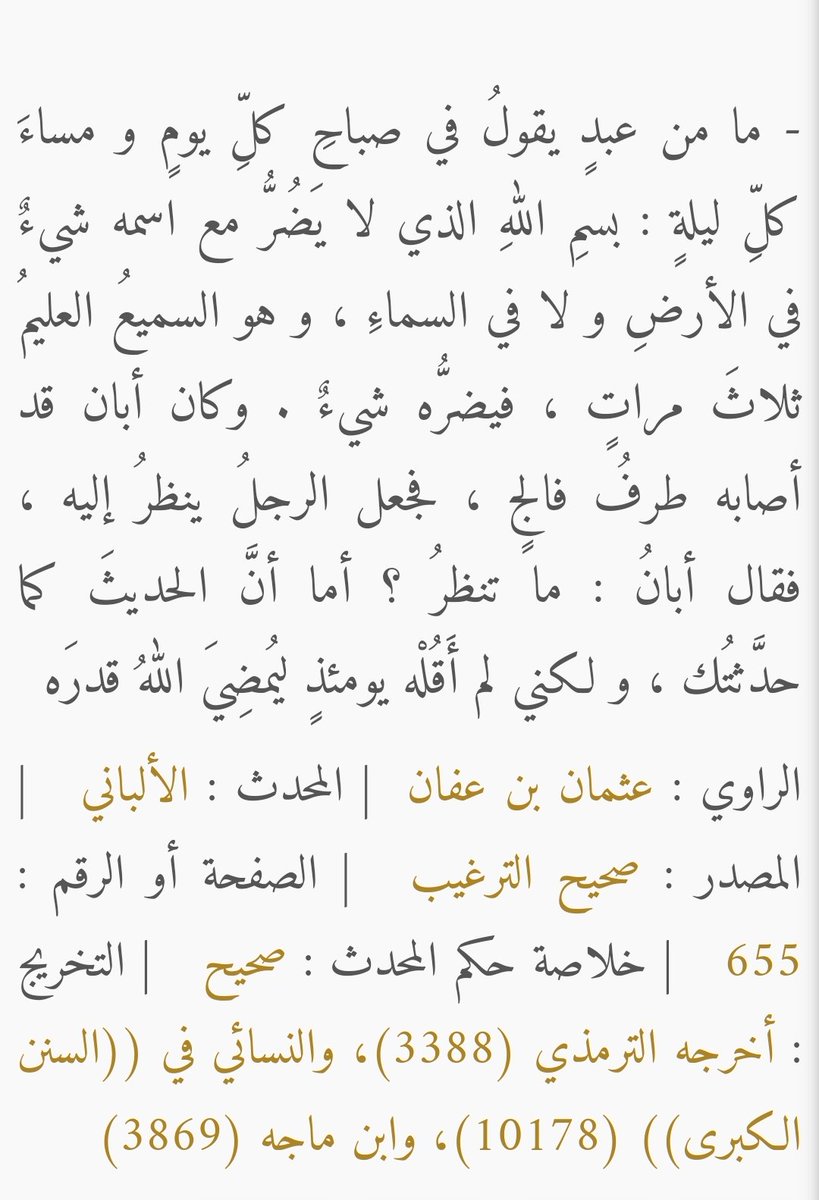 - ما من عبدٍ يقولُ في صباحِ كلِّ يومٍ و مساءَ
كلِّ ليلةٍ : بسمِ اللهِ الذي لا يَضُرُّ مع اسمه شيءٌ
في الأرضِ و لا في السماءِ ، و هو السميعُ العليمُ
ثلاثَ مراتٍ ، فيضرُّه شيءٌ . وكان أبان قد
أصابه طرفُ فالجٍ ، فجعل الرجلُ ينظرُ إليه ،
فقال أبانُ : ما تنظرُ ؟ أما أنَّ الحديثَ كما
حدَّثتُك ، و لكني لم أَقُلْه يومئذٍ ليُمضِيَ اللهُ قدرَه
الراوي : عثمان بن عفان | المحدث : الألباني |
المصدر : صحيح الترغيب | الصفحة أو الرقم :
655 | خلاصة حكم المحدث : صحيح | التخريج
: أخرجه الترمذي (3388)، والنسائي في ((السنن
الكبرى)) (10178)، وابن ماجه (3869)